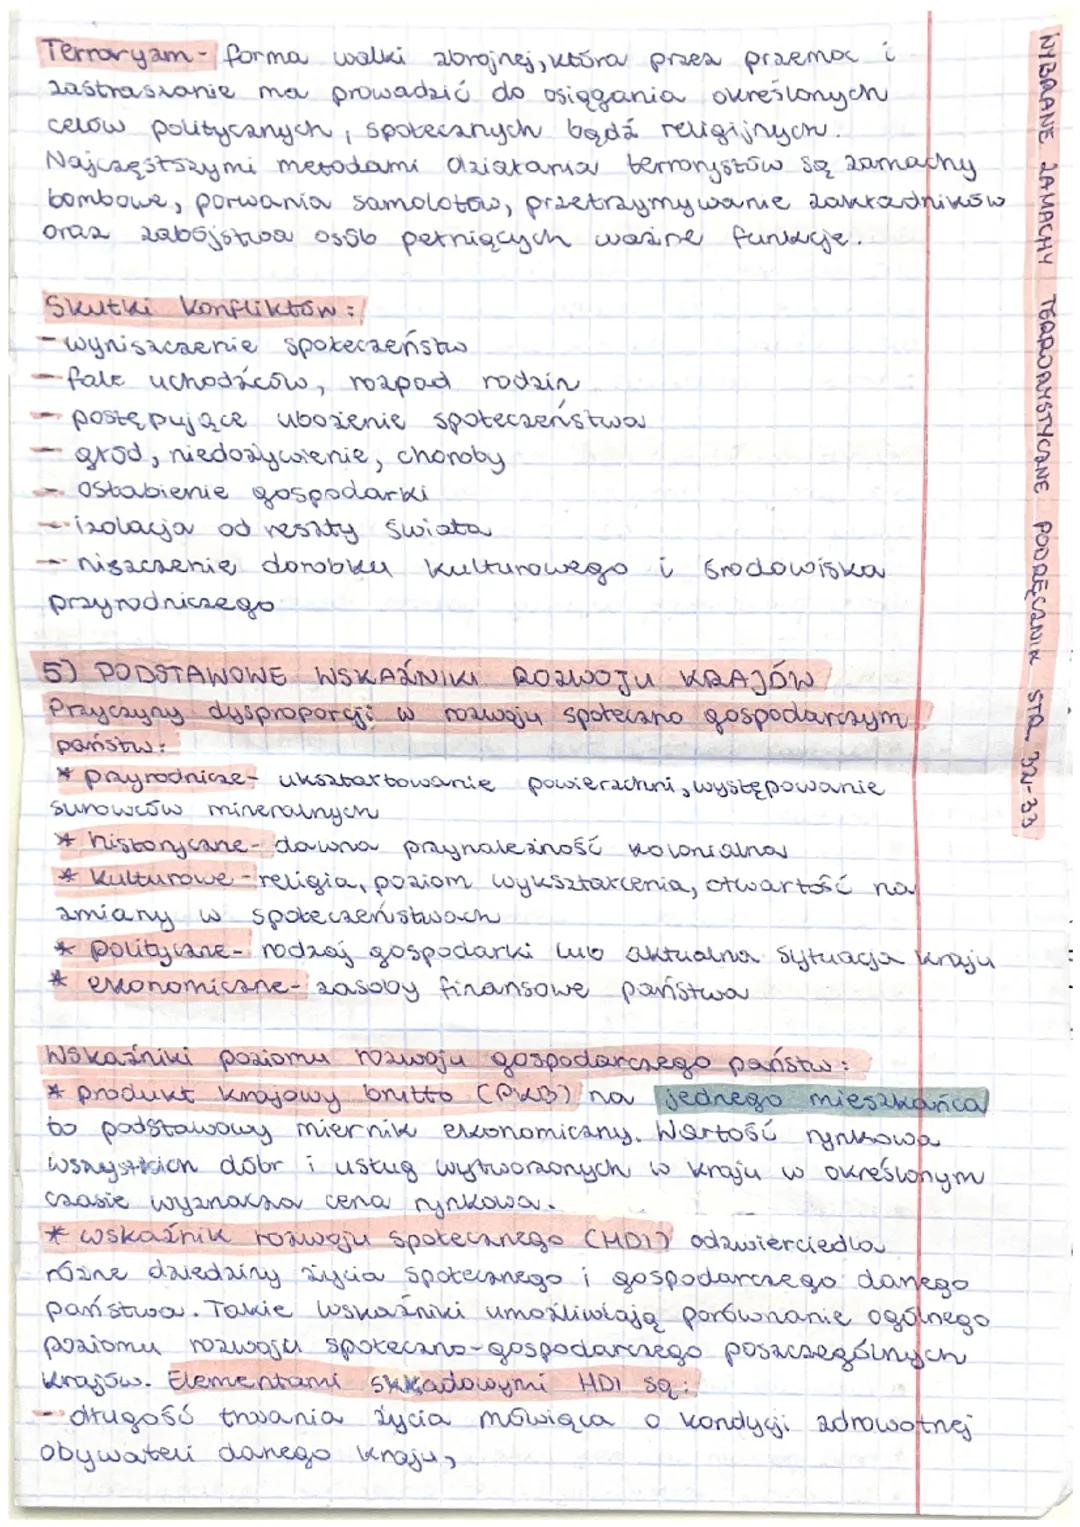 Terroryzm - forma walki zbrojnej, która przez przemoc i
zastraszanie ma prowadzić do osiągania określonych
celów politycznych, społecznych bądź religijnych.
Najczęstszymi metodami działania terrorystów są zamachy
bombowe, porwania samolotów, przetrzymywanie zakładników
oraz zabójstwa osób pełniących ważne funkcje.
Skutki konfliktów:
- wyniszczenie społeczeństw
- fale uchodźców, rozpad rodzin
- postępujące ubożenie społeczeństwa
- głód, niedożywienie, choroby
- osłabienie gospodarki
- izolacja od reszty świata
- niszczenie dorobku kulturowego i środowiska
przyrodniczego
5) PODSTAWOWE WSKAŹNIKI ROZWOJU KRAJÓW
Przyczyny dysproporcji w rozwoju społeczno gospodarczym
państw:
* przyrodnicze - ukształtowanie powierzchni, występowanie
surowców mineralnych
* historyczne - dawna przynależność kolonialna
* kulturowe - religia, poziom wykształcenia, otwartość na
zmiany w społeczeństwach
* polityczne - rodzaj gospodarki lub aktualna sytuacja kraju
* ekonomiczne - zasoby finansowe państwa
Wskaźniki poziomu rozwoju gospodarczego państw:
* produkt krajowy brutto (PKB) na jednego mieszkańca
to podstawowy miernik ekonomiczny. Wartość rynkowa
wszystkich dóbr i usług wytworzonych w kraju w określonym
czasie wyznacza cena rynkowa.
* wskaźnik rozwoju społecznego (HDI) odzwierciedla
różne dziedziny życia społecznego i gospodarczego danego
państwa. Takie wskaźniki umożliwiają porównanie ogólnego
poziomu rozwoju społeczno-gospodarczego poszczególnych
krajów. Elementami składowymi HDI są:
- długość trwania życia mówiąca o kondycji zdrowotnej
obywateli danego kraju,
WYBRANE ZAMACHY TERRORYSTYCZNE PODRĘCZNIK STR. 32-33